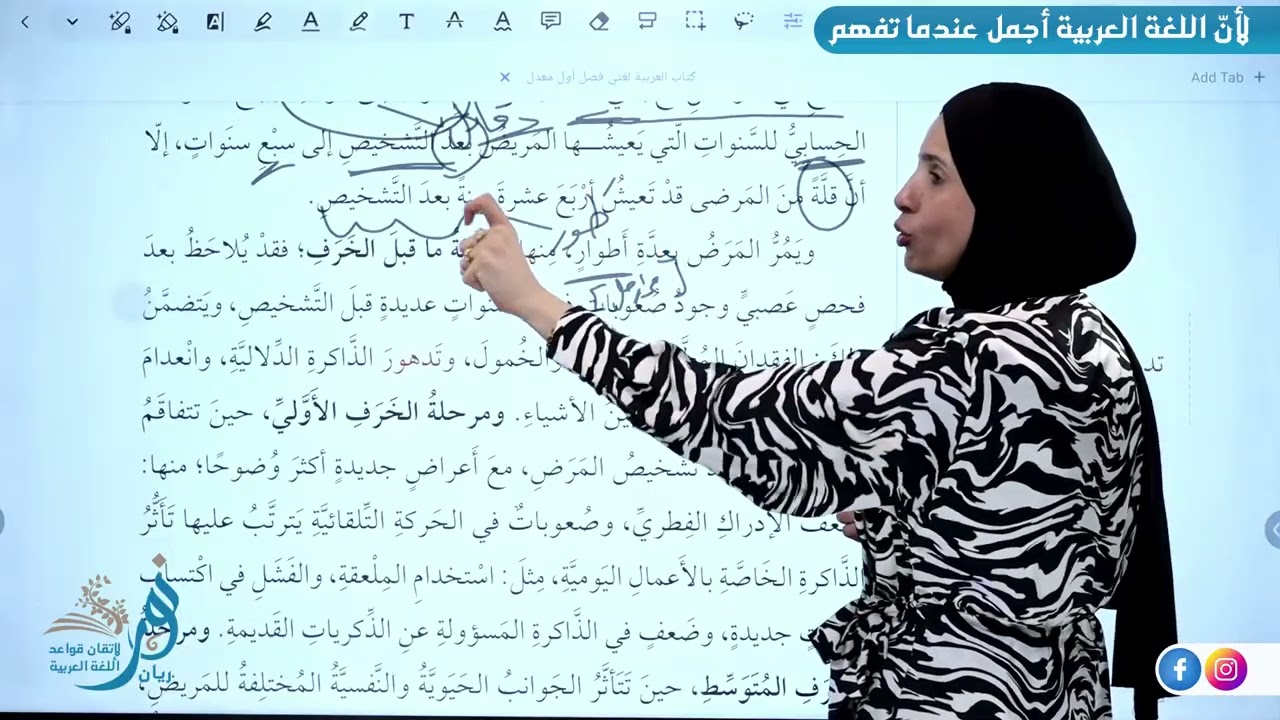 لأنّ اللغة العربية أجمل عندما تفهم
كتاب العربية لغتي فصل أول معدل
Add Tab
الحِسابِيُّ للسَّنواتِ الَّتي يَعيشُـــها المَريضُ بعدَ التَّشخيصِ إلى سبْعِ سنَواتٍ، إلّا
أنَّ قلَّةً منَ المَرضى قدْ تَعيشُ أرْبَعَ عشرةَ بعدَ التَّشخيصِ.
ويَمُرُّ المَرَضُ بِعدَّةِ أَطوارٍ، مِنها ما قبلَ الخَرَفِ؛ فقدْ يُلاحَظُ بعدَ
فحصٍ عَصبيٍّ وجودُ صُعوباتٍ سنواتٍ عديدةٍ قبلَ التَّشخيصِ، ويَتضمَّنُ
الفقدانَ والخُمولَ، وتَدهورَ الذَّاكرةِ الدِّلاليَّةِ، وانْعدامَ
الأشياءِ. ومرحلةُ الخَرَفِ الأَوَّليِّ، حينَ تتفاقَمُ
تشخيصُ المَرَضِ، معَ أَعراضٍ جديدةٍ أكثرَ وُضوحًا؛ منها:
الإدراكِ الفِطريِّ، وصُعوباتٌ في الحَركةِ التِّلقائيَّةِ يَترتَّبُ عليها تَأَثُّرُ
الذَّاكرةِ الخَاصَّةِ بالأَعمالِ اليَوميَّةِ، مِثلَ: اسْتخدامِ المِلْعقةِ، والفَشَلِ في اكْتسابِ
جديدةٍ، وضَعفٍ في الذَّاكرةِ المَسؤولةِ عنِ الذِّكرياتِ القَديمةِ. ومرحلةُ
المُتَوَسِّطِ، حينَ تَتَأثَّرُ الجَوانبُ الحَيَويَّةُ والنَّفسيَّةُ المُختلِفةُ للمَريضِ،
طور
مراحل
لإتقان قواعد
اللغة العربية
ريان